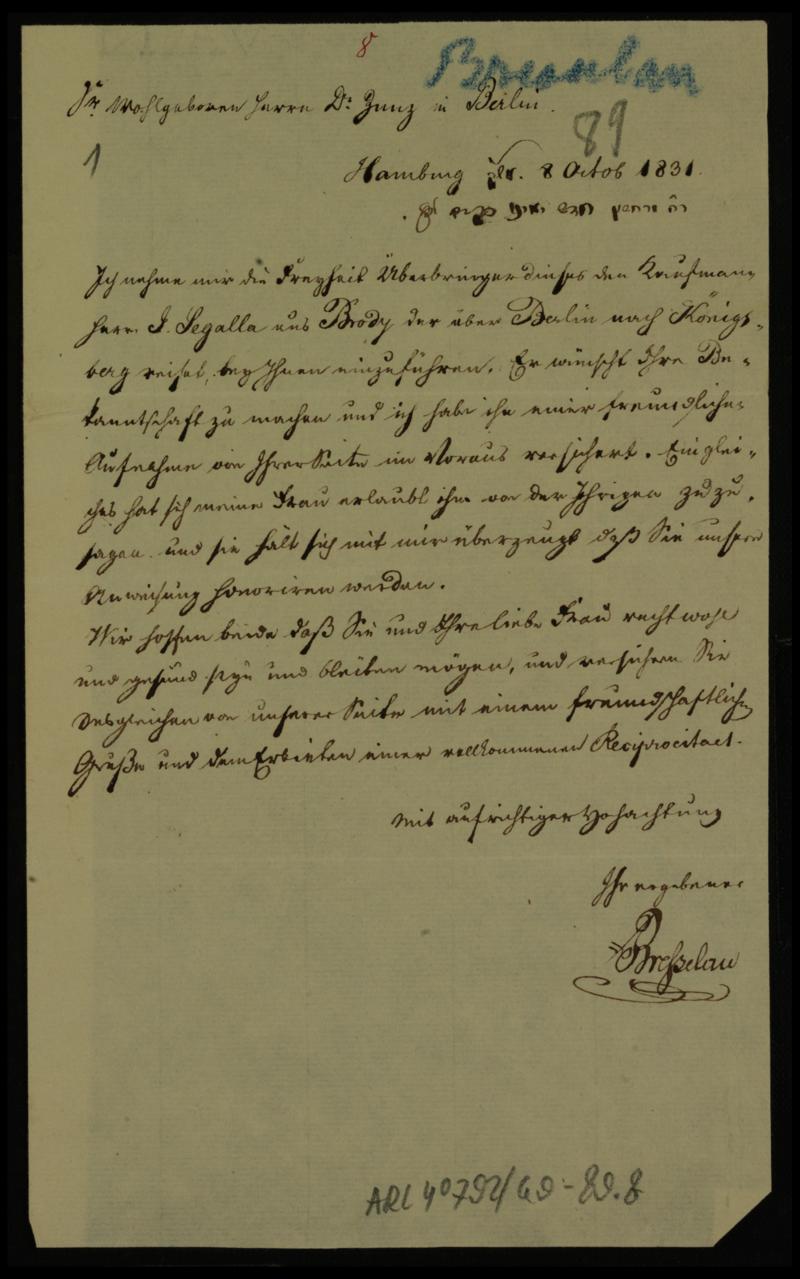 8
Bresselau
Sr Wohlgeboren Herrn Dr Zunz in Berlin.
89
1
Hamburg d. 8 Octob 1831.
Ich nehme mir die Freyheit Überbringer dieses den Kaufmann
Herrn J. Segalla aus Brody der über Berlin nach Königs-
berg reiset, bey Ihnen einzuführen. Er wünscht Ihre Be-
kanntschaft zu machen und ich habe ihn einer freundlichen
Aufnahme von Ihrer Seite im Voraus versichert. Ein glei-
ches hat sich meine Frau erlaubt ihm von der Ihrigen zuzu-
sagen und sie hält sich mit mir überzeugt daß Sie unsere
Anweisung honoriren werden.
Wir hoffen beide daß Sie und Ihre liebe Frau recht wohl
und gesund seyn und bleiben mögen, und versichern Sie
desgleichen von unserer Seite mit einem freundschaftlichen
Gruße und dem Erbieten einer vollkommenen Reciprocitaet.
Mit aufrichtiger Hochachtung
Ihr ergebener
Bresselau
ARC 4° 792/G9-89.8